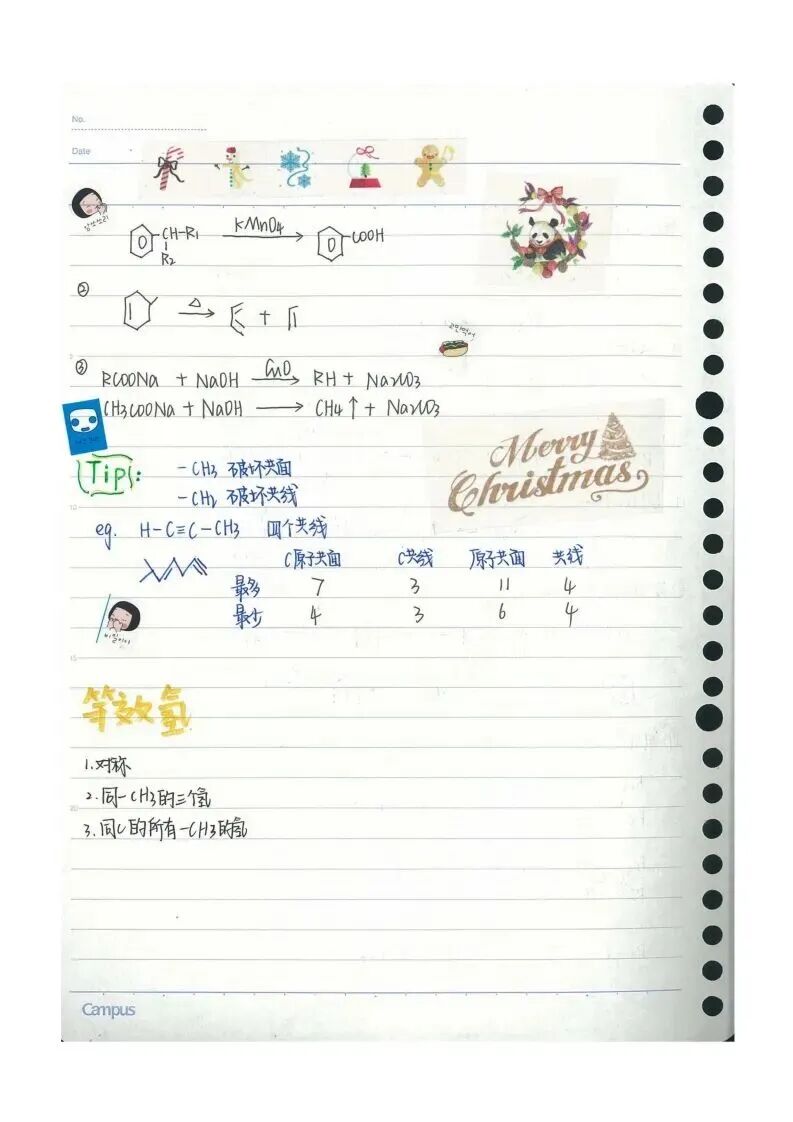 No.
Date
CH-R1 KMnO4 COOH
R2
②
△
+
③
RCOONa + NaOH CaO RH + Na2CO3
CH3COONa + NaOH → CH4↑ + Na2CO3
Merry
Christmas
Tip:
-CH3 破坏共面
-CH2 破坏共线
eg. H-C≡C-CH3 四个共线
C原子共面 C共线 原子共面 共线
最多 7 3 11 4
最少 4 3 6 4
等效氢
1.对称
2.同一CH3的三个氢
3.同C的所有-CH3的氢
Campus